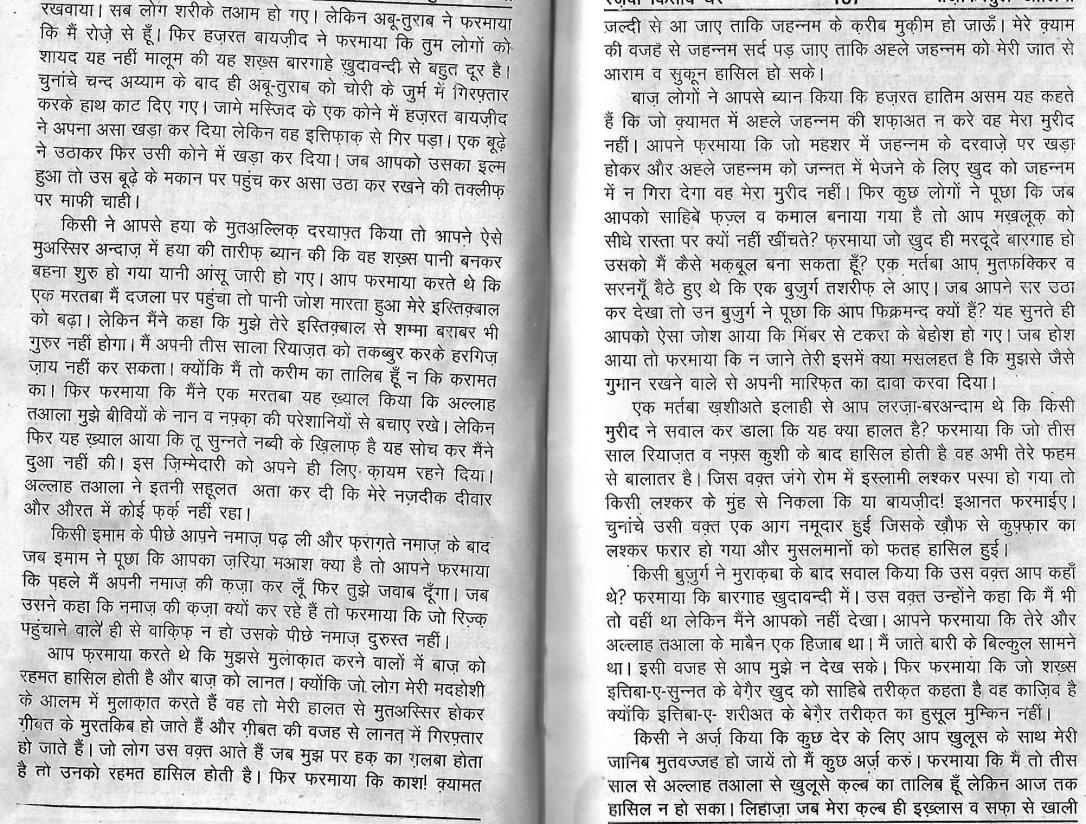 रखवाया। सब लोग शरीके तआम हो गए। लेकिन अबू-तुराब ने फरमाया
कि मैं रोज़े से हूँ। फिर हज़रत बायज़ीद ने फरमाया कि तुम लोगों को
शायद यह नहीं मालूम की यह शख़्स बारगाहे ख़ुदावन्दी से बहुत दूर है।
चुनांचे चन्द अय्याम के बाद ही अबू-तुराब को चोरी के जुर्म में गिरफ़्तार
करके हाथ काट दिए गए। जामे मस्जिद के एक कोने में हज़रत बायज़ीद
ने अपना असा खड़ा कर दिया लेकिन वह इत्तिफ़ाक़ से गिर पड़ा। एक बूढ़े
ने उठाकर फिर उसी कोने में खड़ा कर दिया। जब आपको उसका इल्म
हुआ तो उस बूढ़े के मकान पर पहुंच कर असा उठा कर रखने की तक्लीफ़
पर माफी चाही।
किसी ने आपसे हया के मुतअल्लिक़ दरयाफ़्त किया तो आपने ऐसे
मुअस्सिर अन्दाज़ में हया की तारीफ़ ब्यान की कि वह शख़्स पानी बनकर
बहना शुरु हो गया यानी आंसू जारी हो गए। आप फरमाया करते थे कि
एक मरतबा मैं दजला पर पहुंचा तो पानी जोश मारता हुआ मेरे इस्तिक़्बाल
को बढ़ा। लेकिन मैंने कहा कि मुझे तेरे इस्तिक़्बाल से शम्मा बराबर भी
गुरुर नहीं होगा। मैं अपनी तीस साला रियाज़त को तकब्बुर करके हरगिज़
ज़ाय नहीं कर सकता। क्योंकि मैं तो करीम का तालिब हूँ न कि करामत
का। फिर फरमाया कि मैंने एक मरतबा यह ख़्याल किया कि अल्लाह
तआला मुझे बीवियों के नान व नफ़्क़ा की परेशानियों से बचाए रखे। लेकिन
फिर यह ख़्याल आया कि तू सुन्नते नब्वी के ख़िलाफ़ है यह सोच कर मैंने
दुआ नहीं की। इस ज़िम्मेदारी को अपने ही लिए क़ायम रहने दिया।
अल्लाह तआला ने इतनी सहूलत अता कर दी कि मेरे नज़दीक दीवार
और औरत में कोई फ़र्क़ नहीं रहा।
किसी इमाम के पीछे आपने नमाज़ पढ़ ली और फ़रागते नमाज़ के बाद
जब इमाम ने पूछा कि आपका ज़रिया मआश क्या है तो आपने फरमाया
कि पहले मैं अपनी नमाज़ की क़ज़ा कर लूँ फिर तुझे जवाब दूँगा। जब
उसने कहा कि नमाज़ की क़ज़ा क्यों कर रहे हैं तो फरमाया कि जो रिज़्क़
पहुंचाने वाले ही से वाक़िफ़ न हो उसके पीछे नमाज़ दुरुस्त नहीं।
आप फ़रमाया करते थे कि मुझसे मुलाक़ात करने वालों में बाज़ को
रहमत हासिल होती है और बाज़ को लानत। क्योंकि जो लोग मेरी मदहोशी
के आलम में मुलाक़ात करते हैं वह तो मेरी हालत से मुतअस्सिर होकर
ग़ीबत के मुरतकिब हो जाते हैं और ग़ीबत की वजह से लानत में गिरफ़्तार
हो जाते हैं। जो लोग उस वक़्त आते हैं जब मुझ पर हक़ का ग़लबा होता
है तो उनको रहमत हासिल होती है। फिर फरमाया कि काश! क़्यामत
जल्दी से आ जाए ताकि जहन्नम के क़रीब मुक़ीम हो जाऊँ। मेरे क़्याम
की वजह से जहन्नम सर्द पड़ जाए ताकि अह्ले जहन्नम को मेरी जात से
आराम व सुकून हासिल हो सके।
बाज़ लोगों ने आपसे ब्यान किया कि हज़रत हातिम असम यह कहते
हैं कि जो क़्यामत में अह्ले जहन्नम की शफ़ाअत न करे वह मेरा मुरीद
नहीं। आपने फ़रमाया कि जो महशर में जहन्नम के दरवाज़े पर खड़ा
होकर और अह्ले जहन्नम को जन्नत में भेजने के लिए ख़ुद को जहन्नम
में न गिरा देगा वह मेरा मुरीद नहीं। फिर कुछ लोगों ने पूछा कि जब
आपको साहिबे फ़ज़्ल व कमाल बनाया गया है तो आप मख़्लूक़ को
सीधे रास्ता पर क्यों नहीं खींचते? फरमाया जो ख़ुद ही मरदूदे बारगाह हो
उसको मैं कैसे मक़बूल बना सकता हूँ? एक मर्तबा आप मुतफक्किर व
सरनगूँ बैठे हुए थे कि एक बुज़ुर्ग तशरीफ़ ले आए। जब आपने सर उठा
कर देखा तो उन बुज़ुर्ग ने पूछा कि आप फिक्रमन्द क्यों हैं? यह सुनते ही
आपको ऐसा जोश आया कि मिंबर से टकरा के बेहोश हो गए। जब होश
आया तो फरमाया कि न जाने तेरी इसमें क्या मसलहत है कि मुझसे जैसे
गुमान रखने वाले से अपनी मारिफ़त का दावा करवा दिया।
एक मर्तबा ख़शीअते इलाही से आप लरज़ा-बरअन्दाम थे कि किसी
मुरीद ने सवाल कर डाला कि यह क्या हालत है? फरमाया कि जो तीस
साल रियाज़त व नफ़्स कुशी के बाद हासिल होती है वह अभी तेरे फहम
से बालातर है। जिस वक़्त जंगे रोम में इस्लामी लश्कर पस्पा हो गया तो
किसी लश्कर के मुंह से निकला कि या बायज़ीद! इआनत फरमाईए।
चुनांचे उसी वक़्त एक आग नमूदार हुई जिसके ख़ौफ से कुफ़्फार का
लश्कर फरार हो गया और मुसलमानों को फतह हासिल हुई।
किसी बुज़ुर्ग ने मुराक़बा के बाद सवाल किया कि उस वक़्त आप कहाँ
थे? फरमाया कि बारगाह ख़ुदावन्दी में। उस वक़्त उन्होंने कहा कि मैं भी
तो वहीं था लेकिन मैंने आपको नहीं देखा। आपने फरमाया कि तेरे और
अल्लाह तआला के माबैन एक हिजाब था। मैं जाते बारी के बिल्कुल सामने
था। इसी वजह से आप मुझे न देख सके। फिर फरमाया कि जो शख़्स
इत्तिबा-ए-सुन्नत के बेग़ैर ख़ुद को साहिबे तरीक़त कहता है वह काज़िब है
क्योंकि इत्तिबा-ए- शरीअत के बेग़ैर तरीक़त का हुसूल मुम्किन नहीं।
किसी ने अर्ज़ किया कि कुछ देर के लिए आप ख़ुलूस के साथ मेरी
जानिब मुतवज्जह हो जायें तो मैं कुछ अर्ज़ करुं। फरमाया कि मैं तो तीस
साल से अल्लाह तआला से ख़ुलूसे क़ल्ब का तालिब हूँ लेकिन आज तक
हासिल न हो सका। लिहाज़ा जब मेरा क़ल्ब ही इख़्लास व सफ़ा से खाली